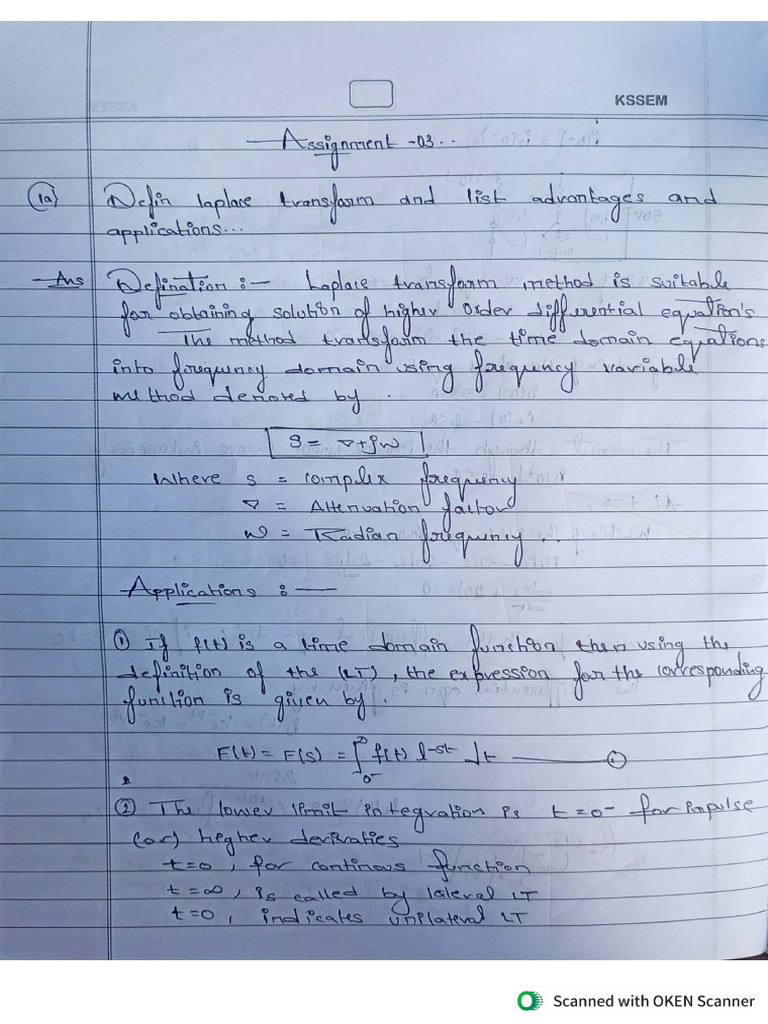 KSSEM
Assignment -03..
1a) Defin laplace transfarm and list advantages and
applications...
Ans Defination :- Laplace transfarm method is suitable
for obtaining solution of higher order differential equation's
The method transfarm the time domain equations
into frequency domain using frequency variable
method denoted by.
S = ∇+jw
Where s = complex frequency
∇ = Attenuation factor
w = Radian frequency..
Applications :—
① If f(t) is a time domain function then using the
definition of the (LT), the expression for the corresponding
function is given by.
F(t) = F(s) = ∫₀-^∞ f(t) e^-st dt — ①
② The lower limit integration is t=0⁻ for impulse
(or) hegher derivaties
t=0, for continous function
t=∞, is called by lateral LT
t=0, indicates unilateral LT
Scanned with OKEN Scanner